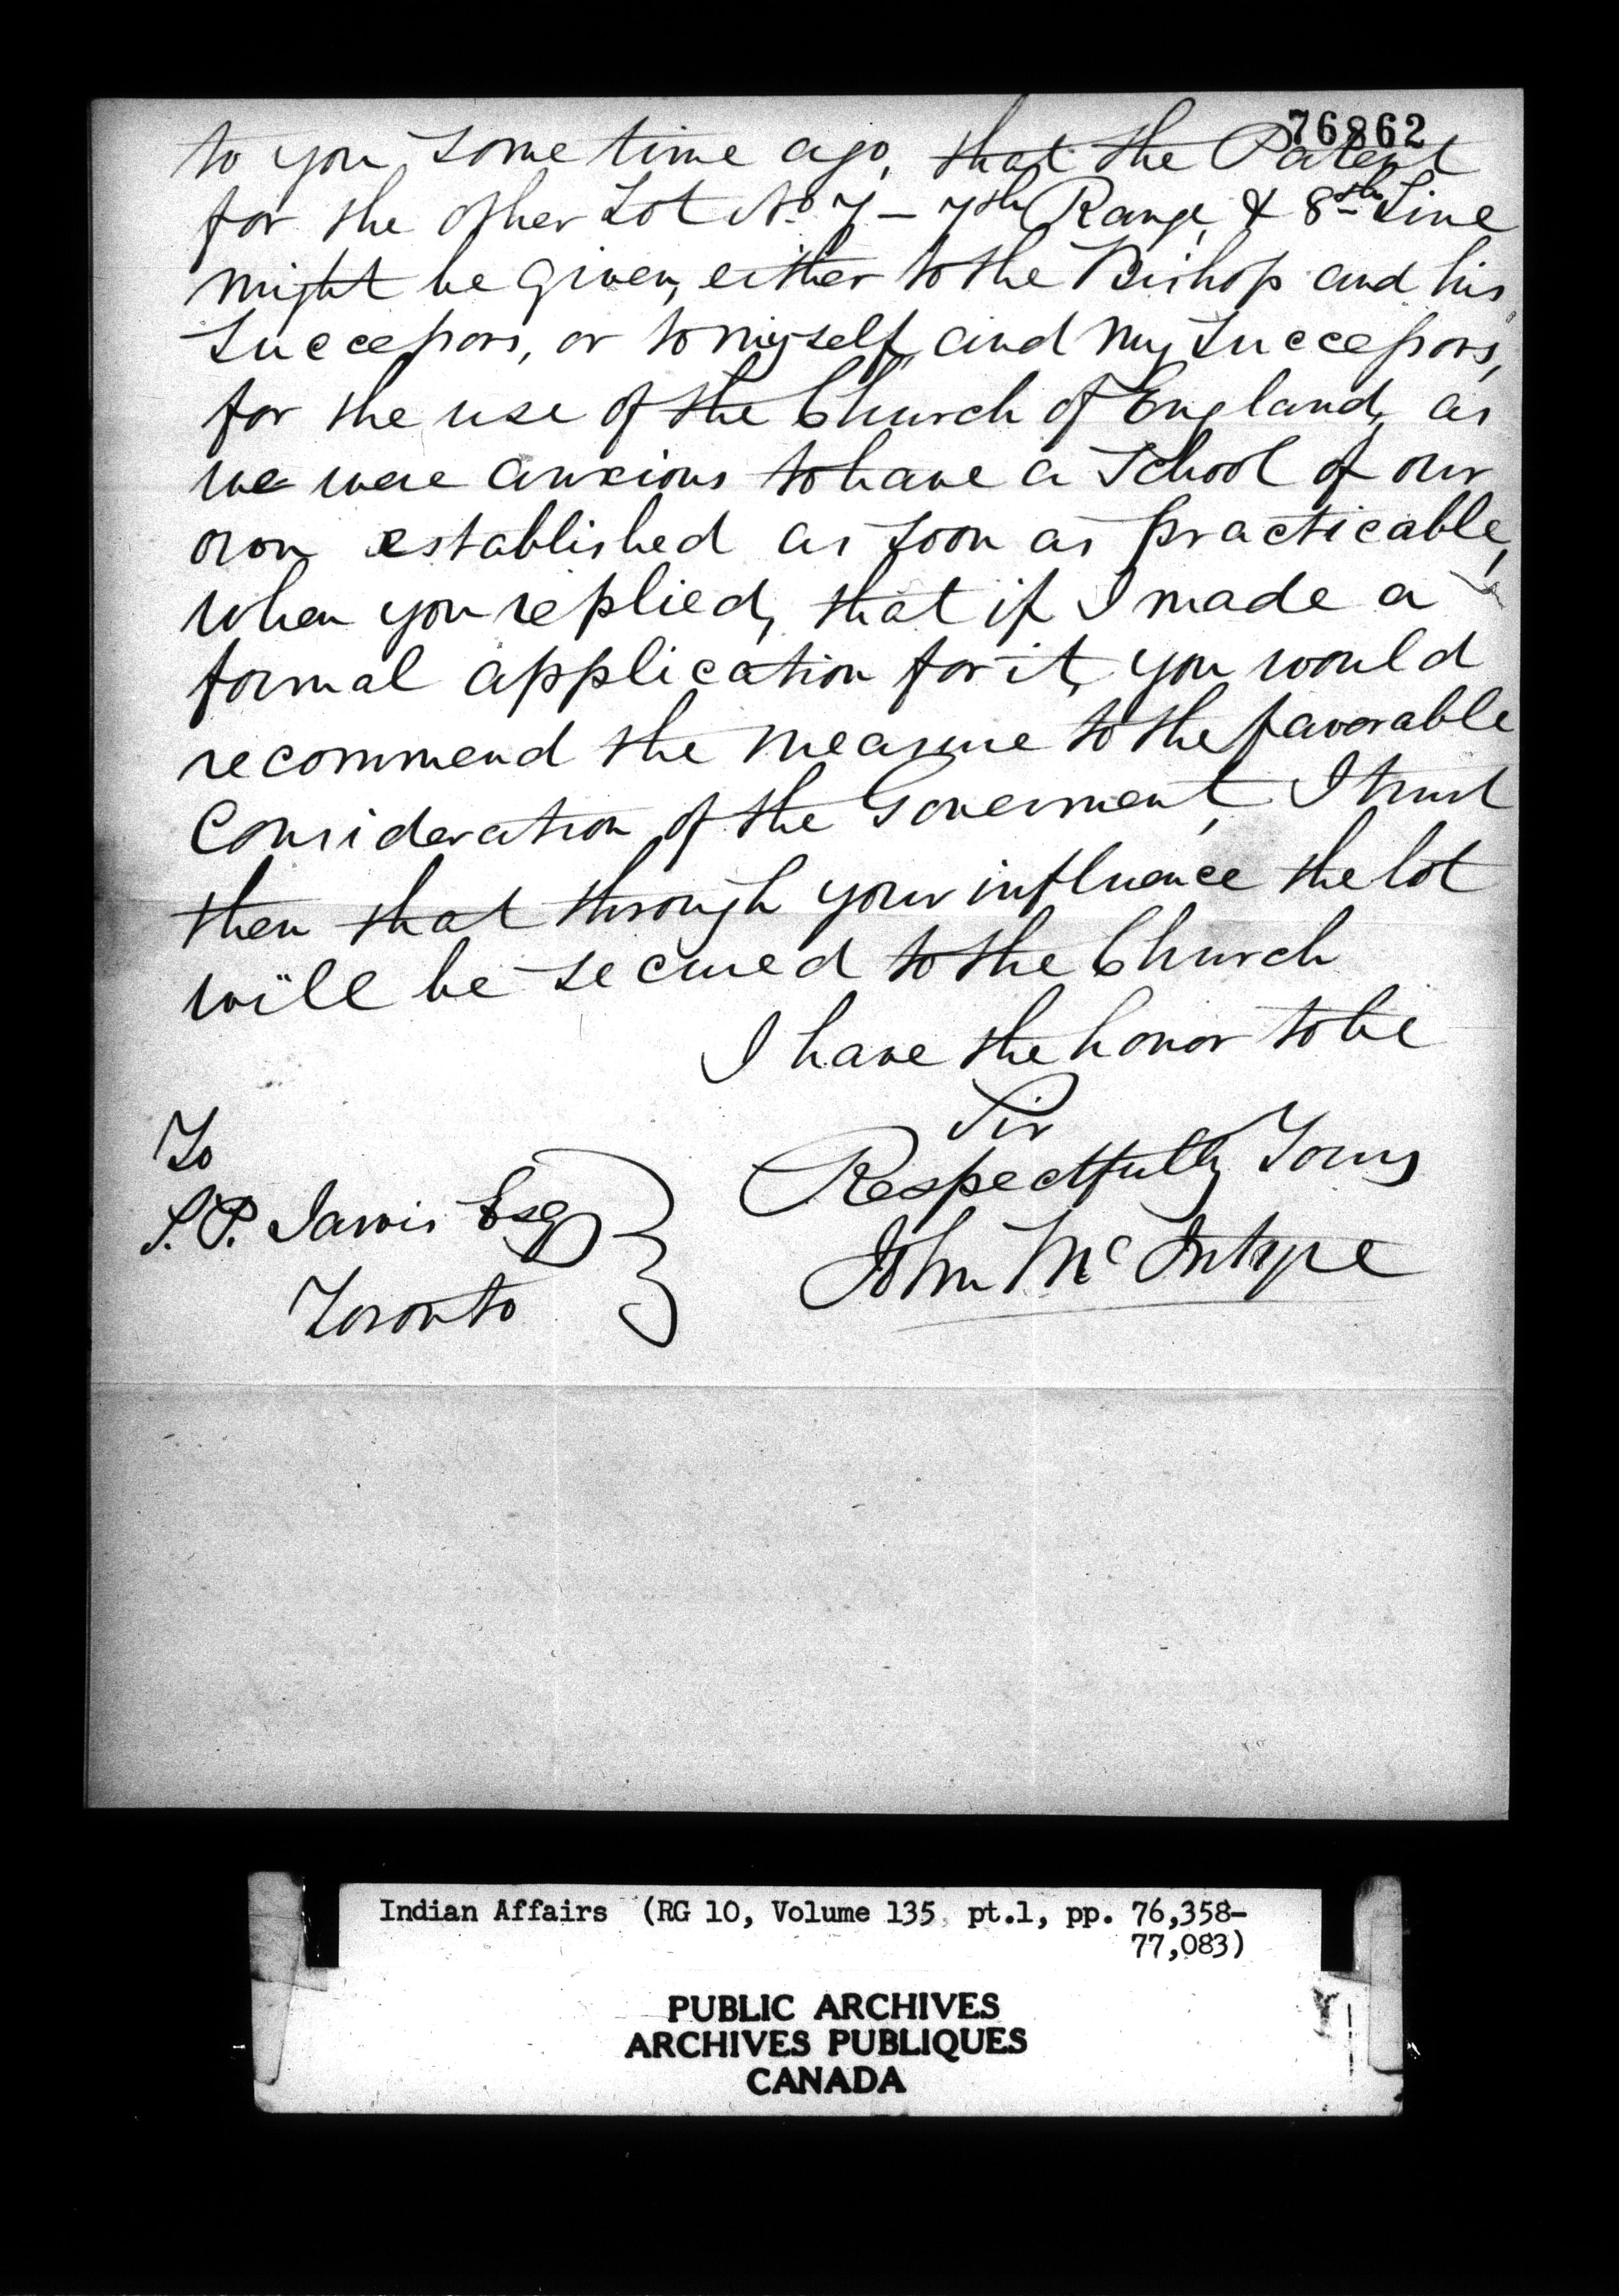 76862
to you some time ago, that the Patent
for the other Lot No 7 – 7th Range, & 8th Line
might be given, either to the Bishop and his
Successors, or to myself, and my Successors,
for the use of the Church of England, as
we were anxious to have a School of our
own established as soon as practicable,
when you replied, that if I made a
formal application for it, you would
recommend the measure to the favorable
Consideration of the Government, I trust
then that through your influence the lot
will be secured to the Church
I have the honor to be
Sir
Respectfully Yours
John McIntyre
To
S. P. Jarvis Esq
Toronto
Indian Affairs (RG 10, Volume 135 pt.1, pp. 76,358-
77,083)
PUBLIC ARCHIVES
ARCHIVES PUBLIQUES
CANADA